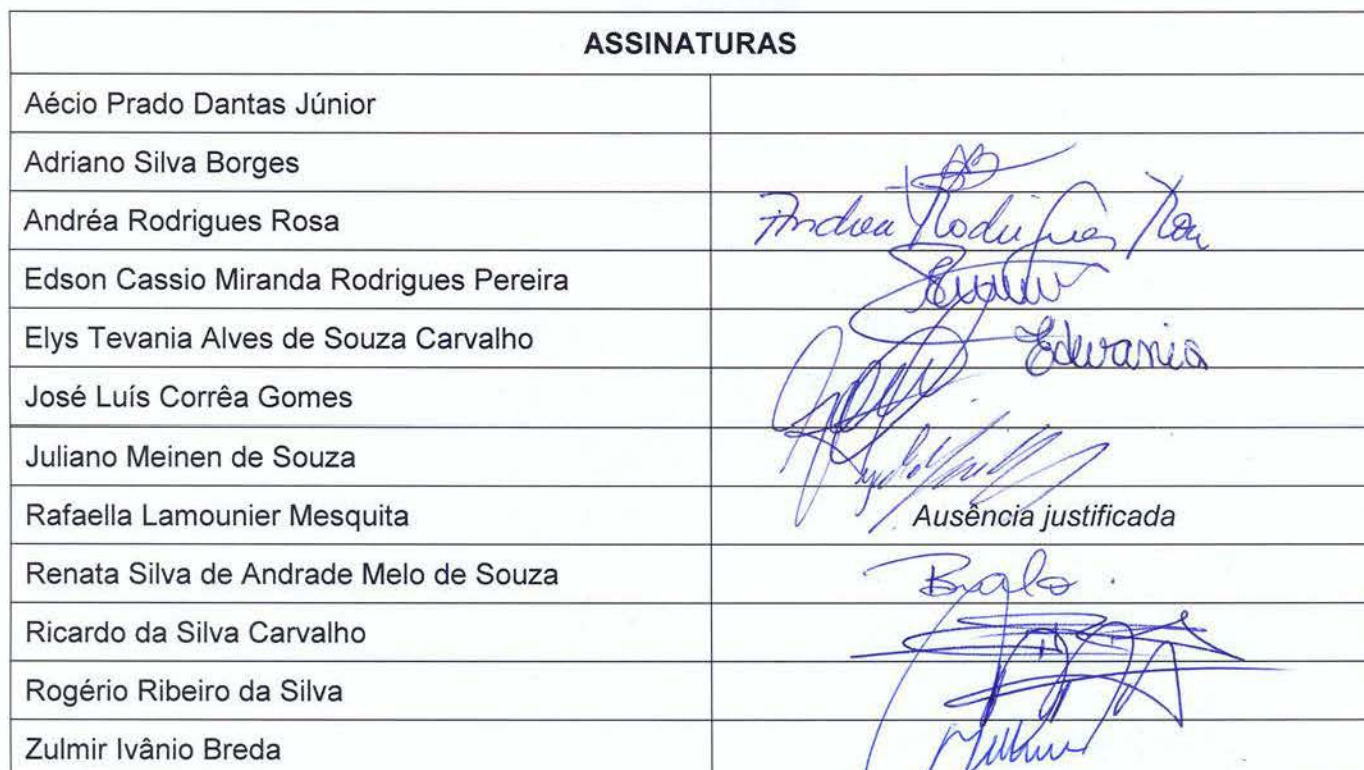 ASSINATURAS
Aécio Prado Dantas Júnior
Adriano Silva Borges
Andréa Rodrigues Rosa Andrea Rodrigues Rosa
Edson Cassio Miranda Rodrigues Pereira
Elys Tevania Alves de Souza Carvalho
José Luís Corrêa Gomes
Juliano Meinen de Souza
Rafaella Lamounier Mesquita Ausência justificada
Renata Silva de Andrade Melo de Souza
Ricardo da Silva Carvalho
Rogério Ribeiro da Silva
Zulmir Ivânio Breda